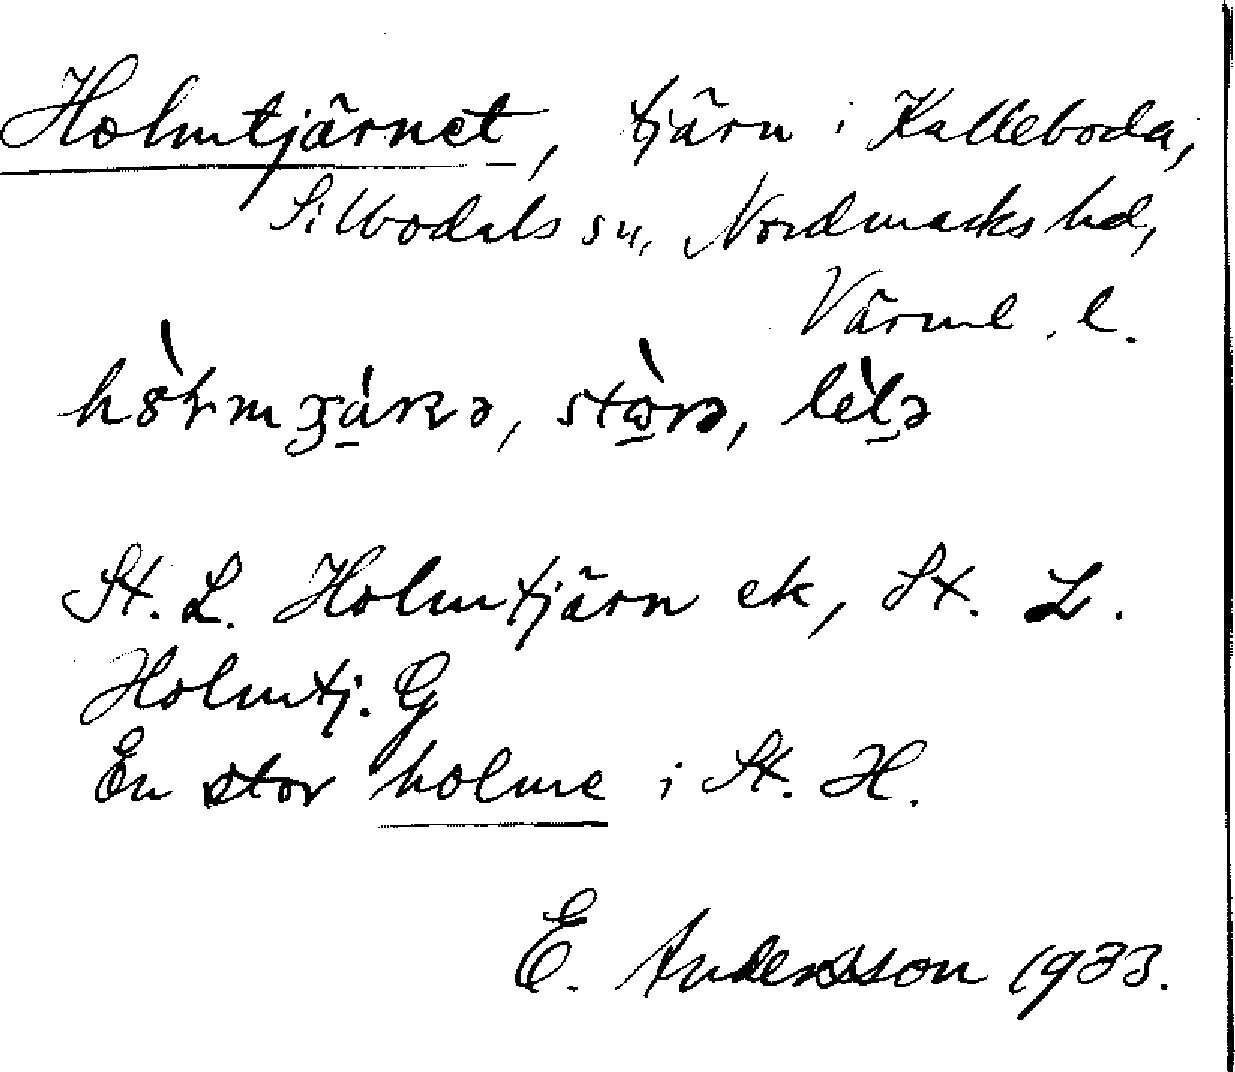 Holmtjärnet, tjärn i Kalleboda,
Silbodals sn, Nordmarks hd,
Värml. l.
St. L. Holmtjärn ek, St. L.
Holmtj. G
En stor holme i St. H.
E. Andersson 1933.